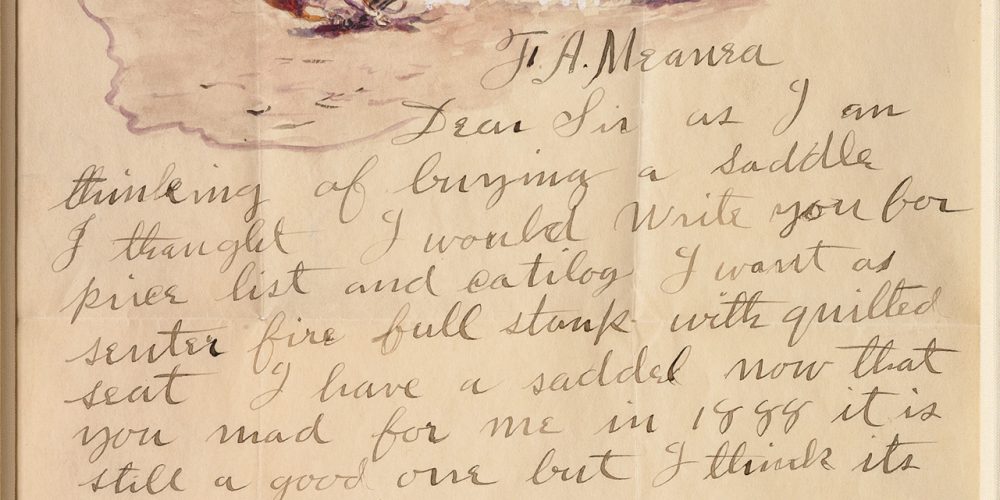 F. A. Meanea
Dear Sir as I am
thinking of buying a saddle
I thought I would write you for
price list and catilog I want as
senter fire full stanp with quilted
seat I have a saddel now that
you mad for me in 1888 it is
still a good one but I think its